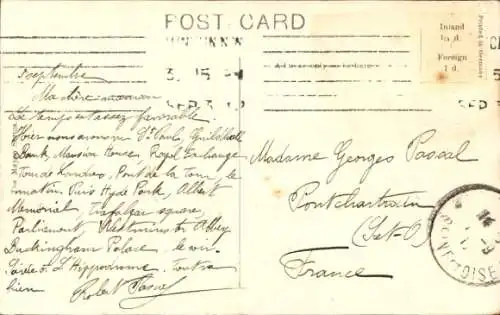 POST CARD
Inland
½ d.
Foreign
1 d.
Printed in Germany
3. 15
SEP 3
3 septembre
Ma chère maman
Le temps est assez favorable.
Hier nous avons vu St Paul's, Guildhall
Bank, Mansion House, Royal Exchange
Tour de Londres, Pont de la Tour le
matin. Puis Hyde Park, Albert
Memorial, Trafalgar square,
Parliement Westminster Abbey
Buckingham Palace. le soir
Soirée à l'Hippodrome. Tout va
bien
Robert Pascal
Madame Georges Pascal
Pontchartrain
(S-et-O)
France